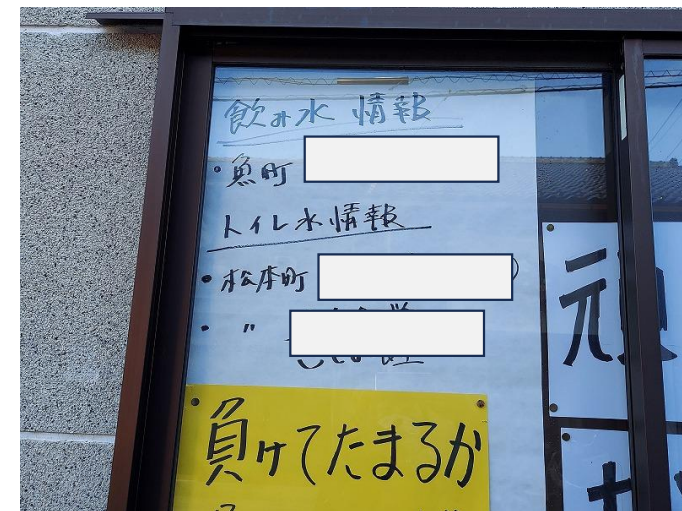 飲み水 情報
・魚町
トイレ水情報
・松本町
・ 〃
負けてたまるか
元